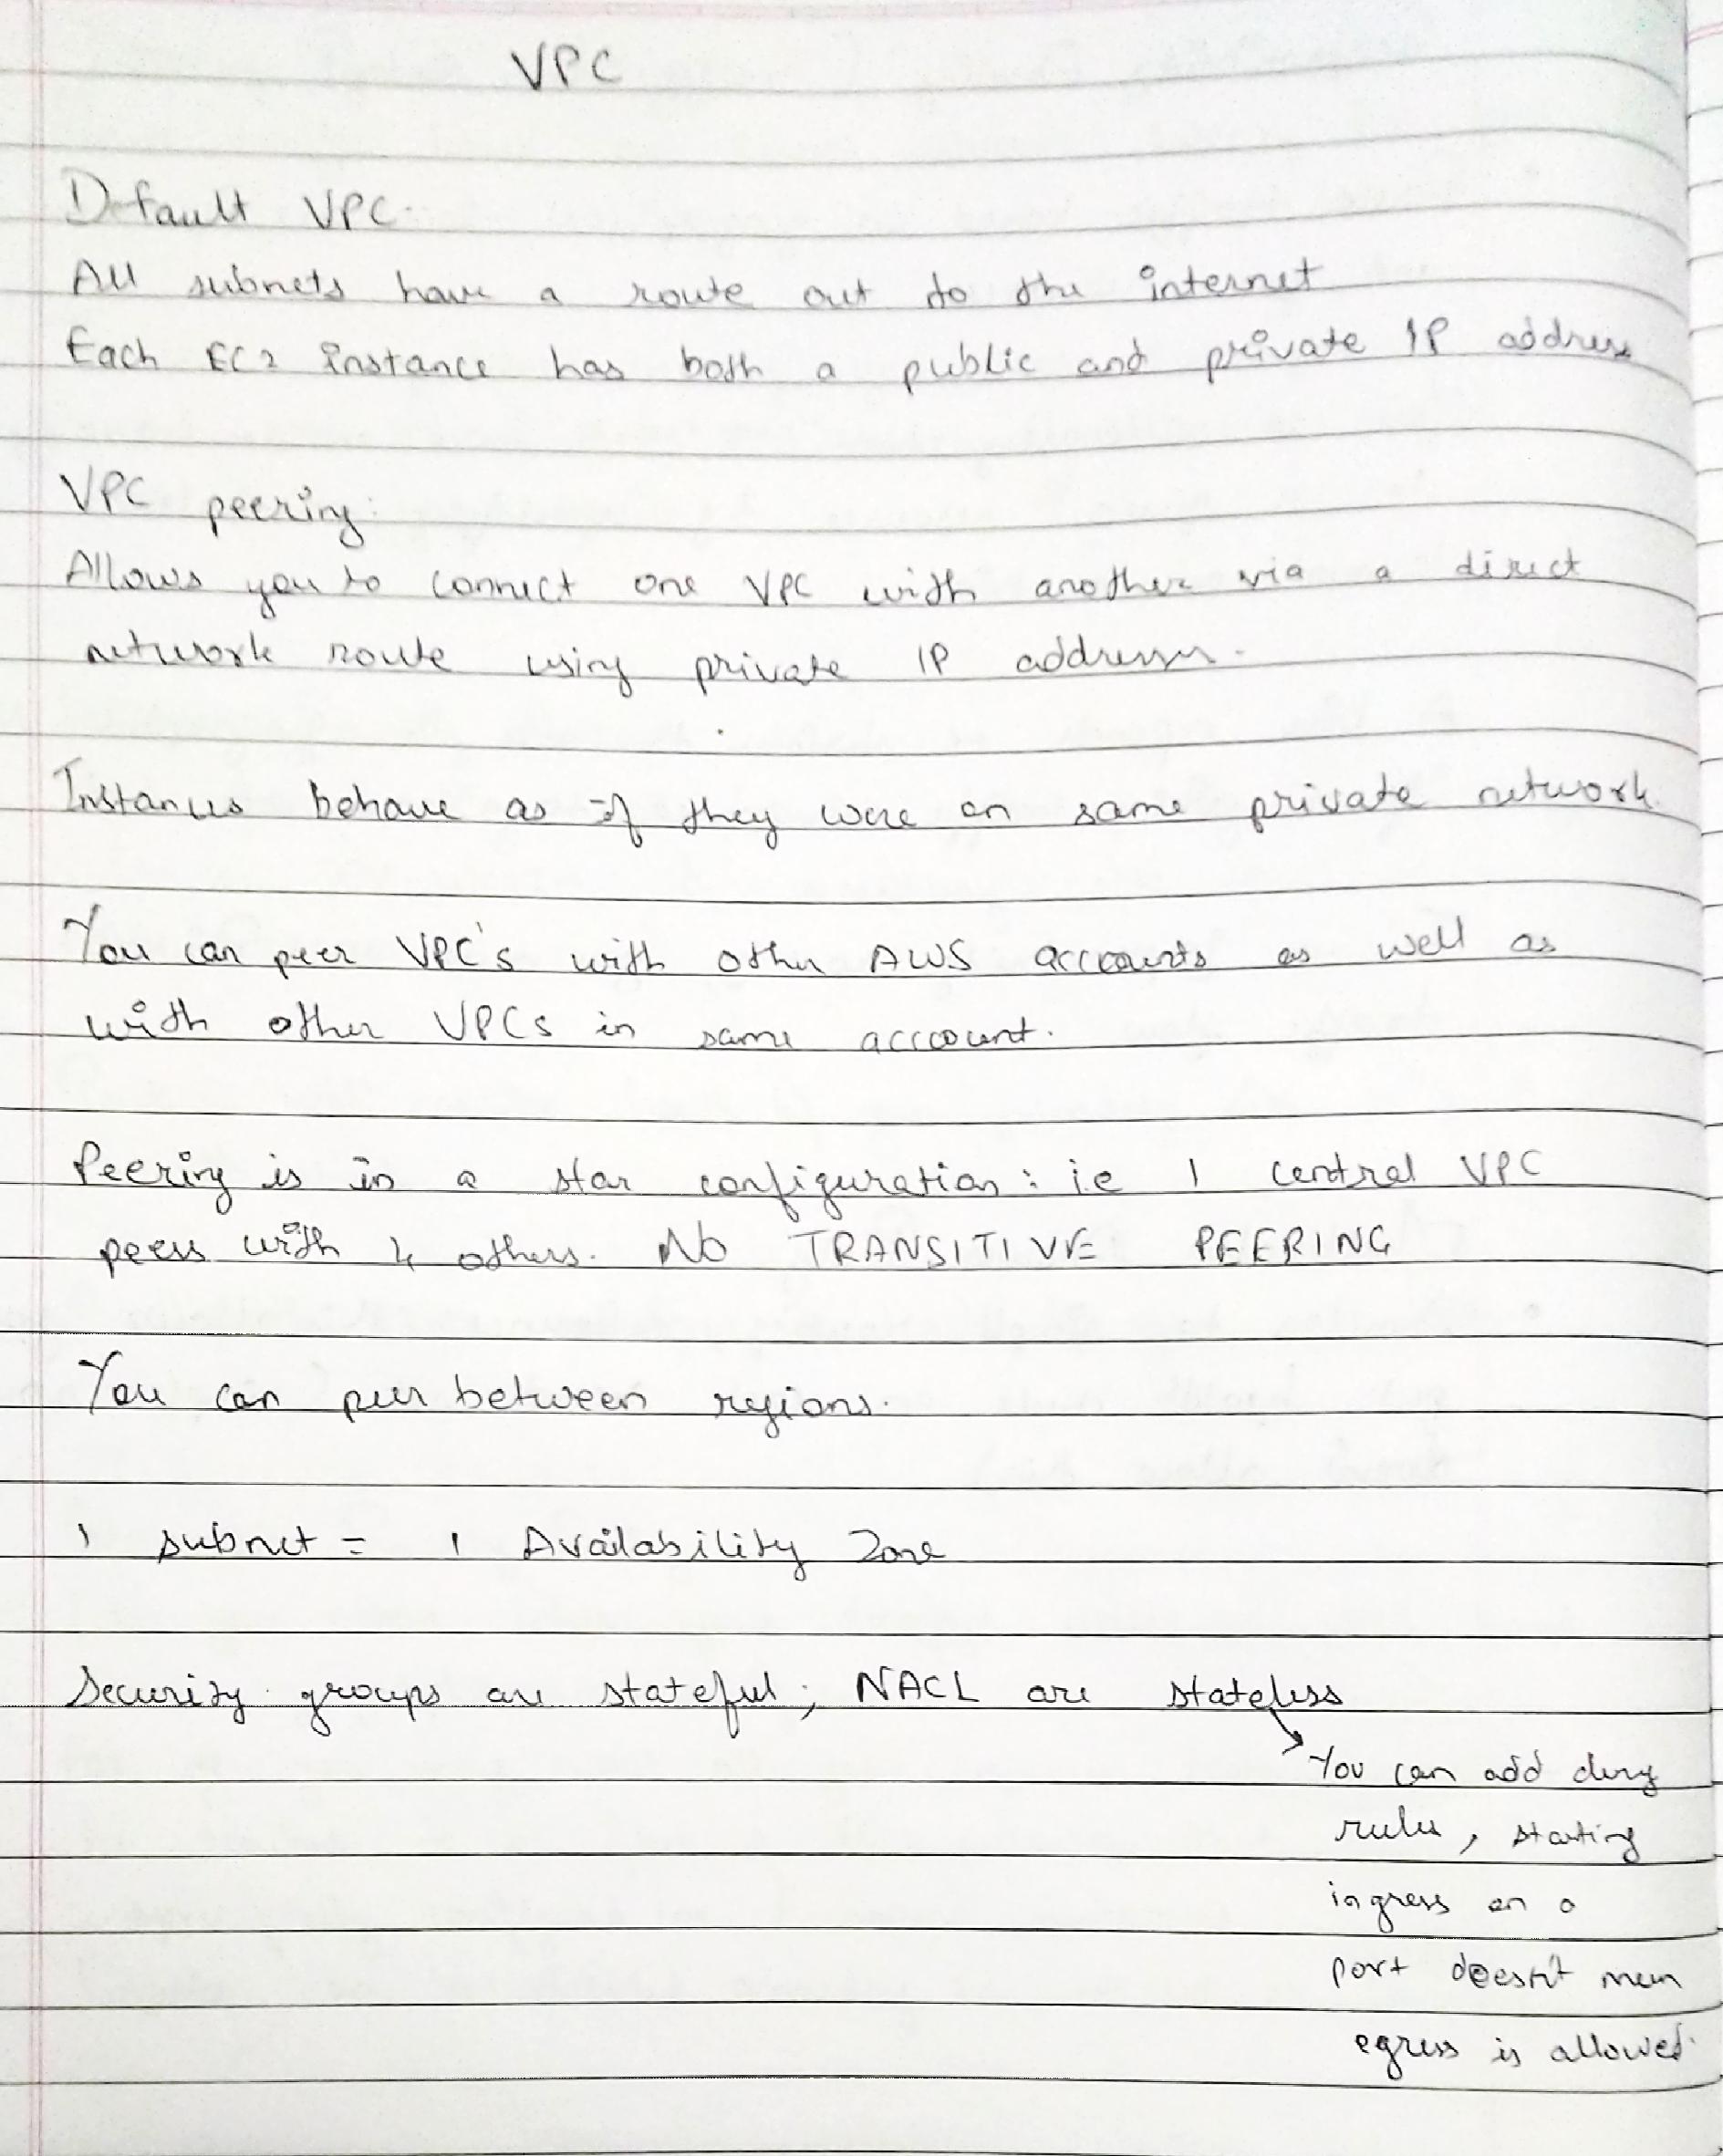 VPC
Default VPC.
All subnets have a route out to the internet
Each EC2 instance has both a public and private IP address
VPC peering:
Allows you to connect one VPC with another via a direct
network route using private IP addresses.
Instances behave as if they were on same private network
You can peer VPC's with other AWS accounts as well as
with other VPCs in same account.
Peering is in a star configuration: i.e 1 central VPC
peers with 4 others. NO TRANSITIVE PEERING
You can peer between regions.
1 subnet = 1 Availability Zone
Security groups are stateful; NACL are stateless
You can add deny
rules, starting
ingress on a
port doesn't mean
egress is allowed.